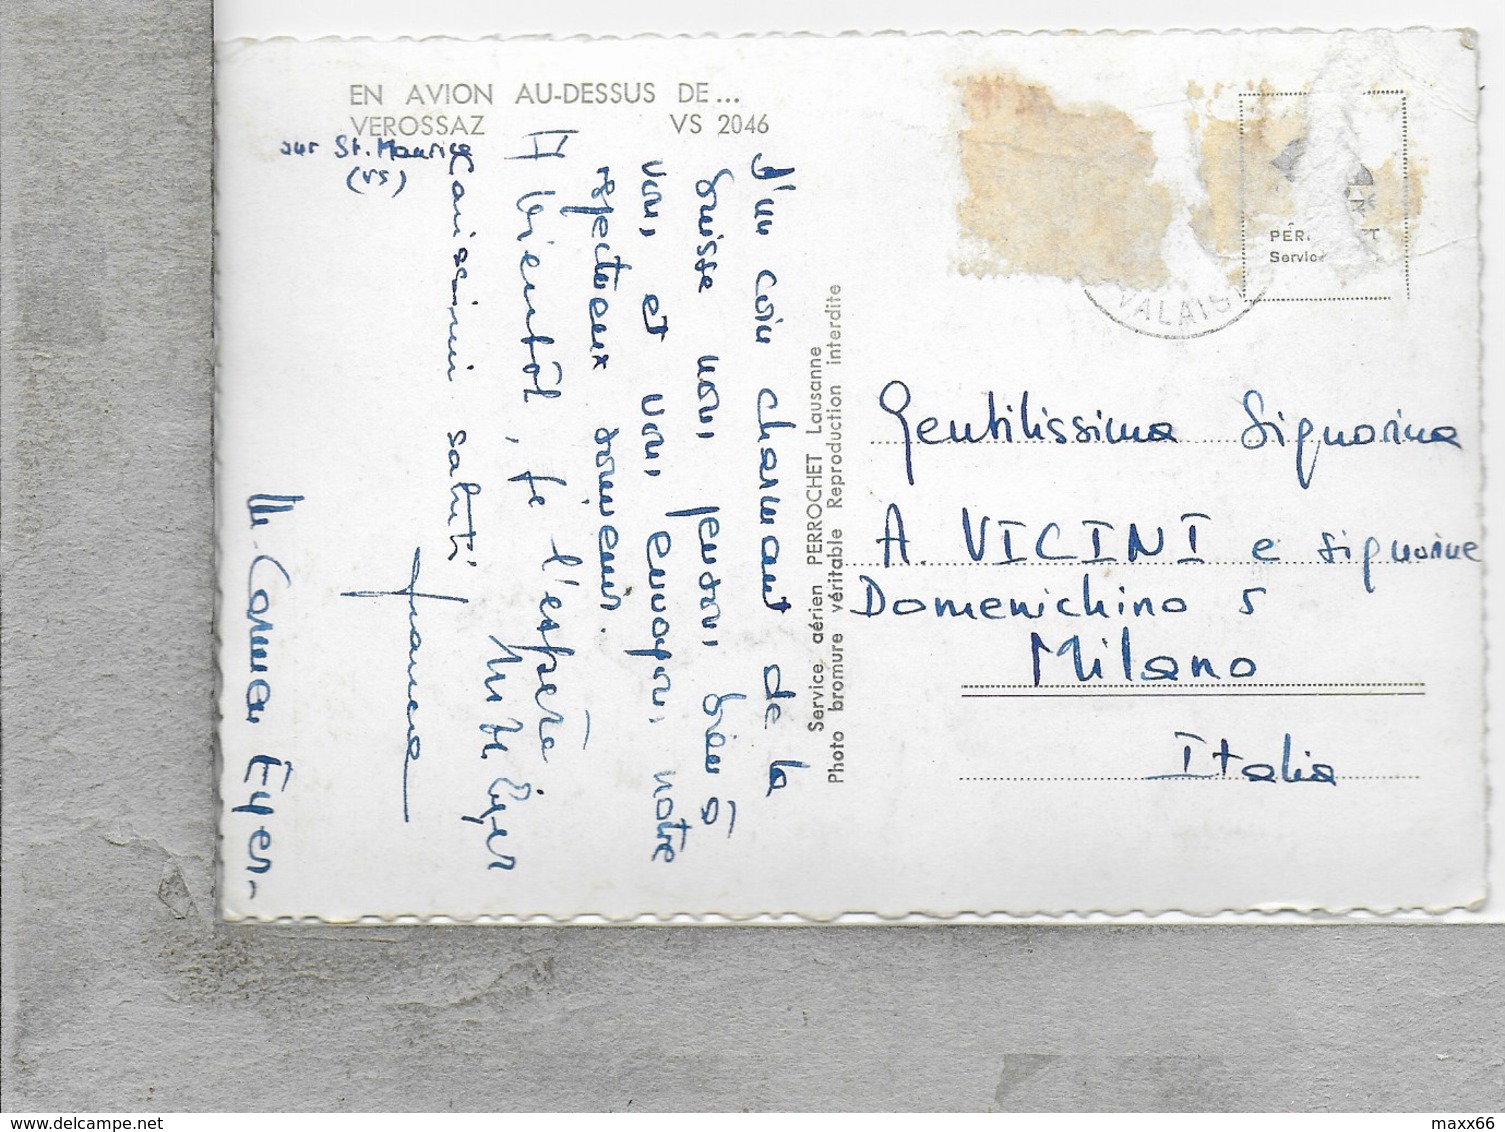 EN AVION AU-DESSUS DE...
VEROSSAZ VS 2046
sur St. Maurice
(VS)
D'un coin charmant de la
Suisse nous pensons bien à
vous et vous envoyons notre
respectueux souvenir.
A bientôt, je l'espère
Carissimi saluti
M. Carmen Eyer-
Service aérien PERROCHET Lausanne
Photo bromure véritable Reproduction interdite
PER
Service
VALAIS
Gentilissima Signorina
A. VICINI e signorine
Domenichino 5
Milano
Italia
delcampe.net
maxx66